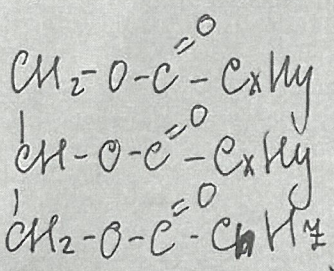 CH₂-O-C(=O)-CxHy
CH-O-C(=O)-CxHy
CH₂-O-C(=O)-CnHz